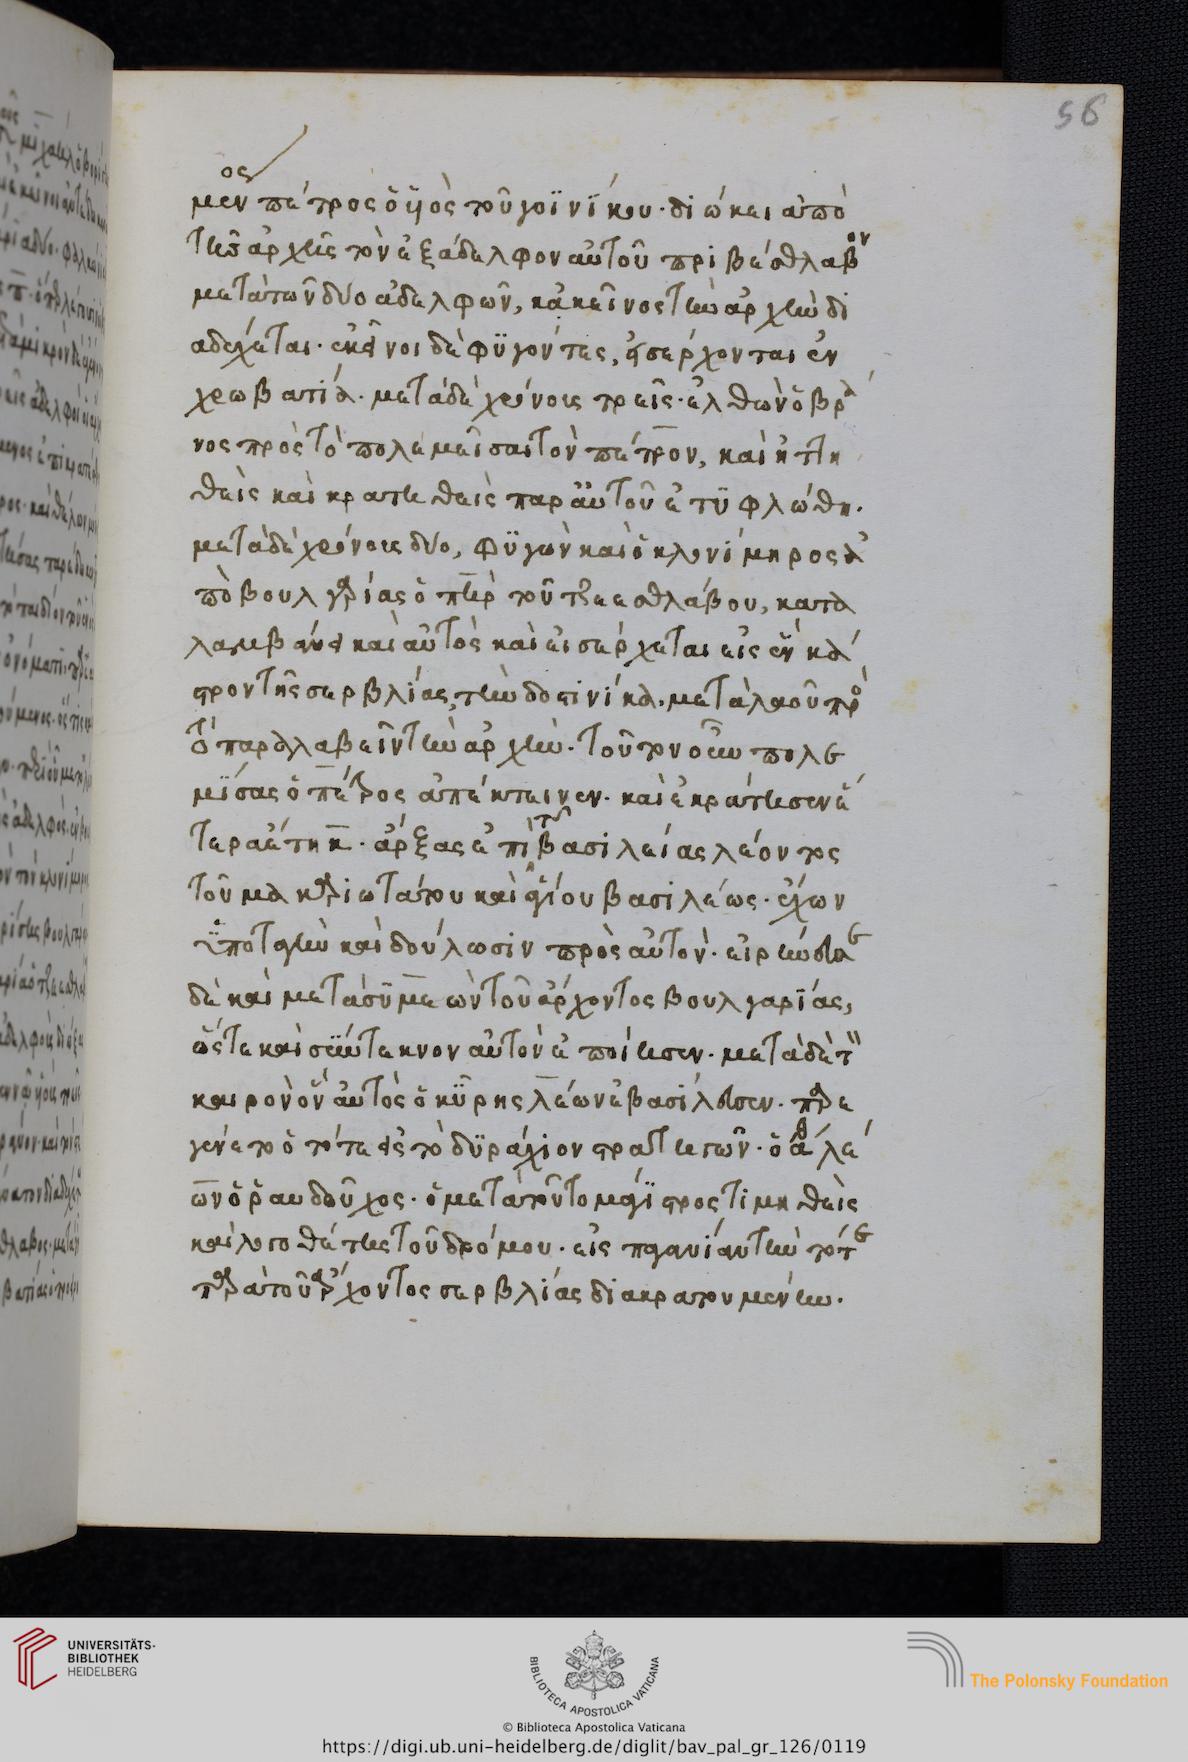 56
ος
μεν πέτρος ὁ ὑιὸς τοῦ γοϊνΐκου· διώκει ἀπὸ
τῆς ἀρχῆς τὸν ἐξάδελφον αὐτοῦ πριβέσθλαβον
μετὰ τῶν δύο ἀδελφῶν, κἀκεῖνος τὴν ἀρχὴν δι
αδέχεται· ἐκεῖνοι δὲ φϋγόντες, εἰσέρχονται ἐν
χρωβατία· μετὰ δὲ χρόνοις τρεῖς· ἐλθὼν ὁ βρά
νος πρὸς τὸ πολεμεῖσαι τὸν πέτρον, καὶ ἡττη
θεὶς καὶ κρατηθεὶς παρ' αὐτοῦ ἐτϋφλώθη·
μετὰ δὲ χρόνοις δύο, φϋγὼν καὶ ὁ κλονίμηρος ἀ
πὸ βουλγαρίας ὁ πὴρ τοῦ τζεεσθλάβου, κατα
λαμβάνει καὶ αὐτὸς καὶ εἰσέρχεται εἰς ἓν κά
στρον τῆς σερβλίας, τὴν δοστινίκα· μετὰ λαοῦ πρὸ
τὸ παραλαβεῖν τὴν ἀρχήν· τοῦτον οὖν πολε
μΐσας ὁ πέτρος ἀπέκτεινεν· καὶ ἐκράτησεν ἕ
τερα ἔτη κ· ἄρξας ἐπὶ τῆς βασιλείας λέοντος
τοῦ μακαριωτάτου καὶ ἁγίου βασιλέως· ἔχων
ὑποταγὴν καὶ δούλωσιν πρὸς αὐτόν· εἰρήνευσε
δὲ καὶ μετὰ σϋμεὼν τοῦ ἄρχοντος βουλγαρΐας,
ὥστε καὶ σϋντεκνον αὐτὸν ἐποίησεν· μετὰ δὲ τὸν
καιρὸν ὃν αὐτὸς ὁ κῦρης λέων ἐβασίλευσεν· παρε
γένετο ὁ τότε εἰς τὸ δϋράχιον στρατηγῶν· ὁ ἀ λέ
ων ὁ ῥαυδοῦχος· ὁ μετὰ τοῦτο μάγϊστρος τιμηθεὶς
καὶ λογοθέτης τοῦ δρόμου· εἰς παγανίαν τὴν τότε
παρὰ τοῦ ἄρχοντος σερβλίας διακρατουμένην·
UNIVERSITÄTS-
BIBLIOTHEK
HEIDELBERG
BIBLIOTECA APOSTOLICA VATICANA
The Polonsky Foundation
© Biblioteca Apostolica Vaticana
https://digi.ub.uni-heidelberg.de/diglit/bav_pal_gr_126/0119